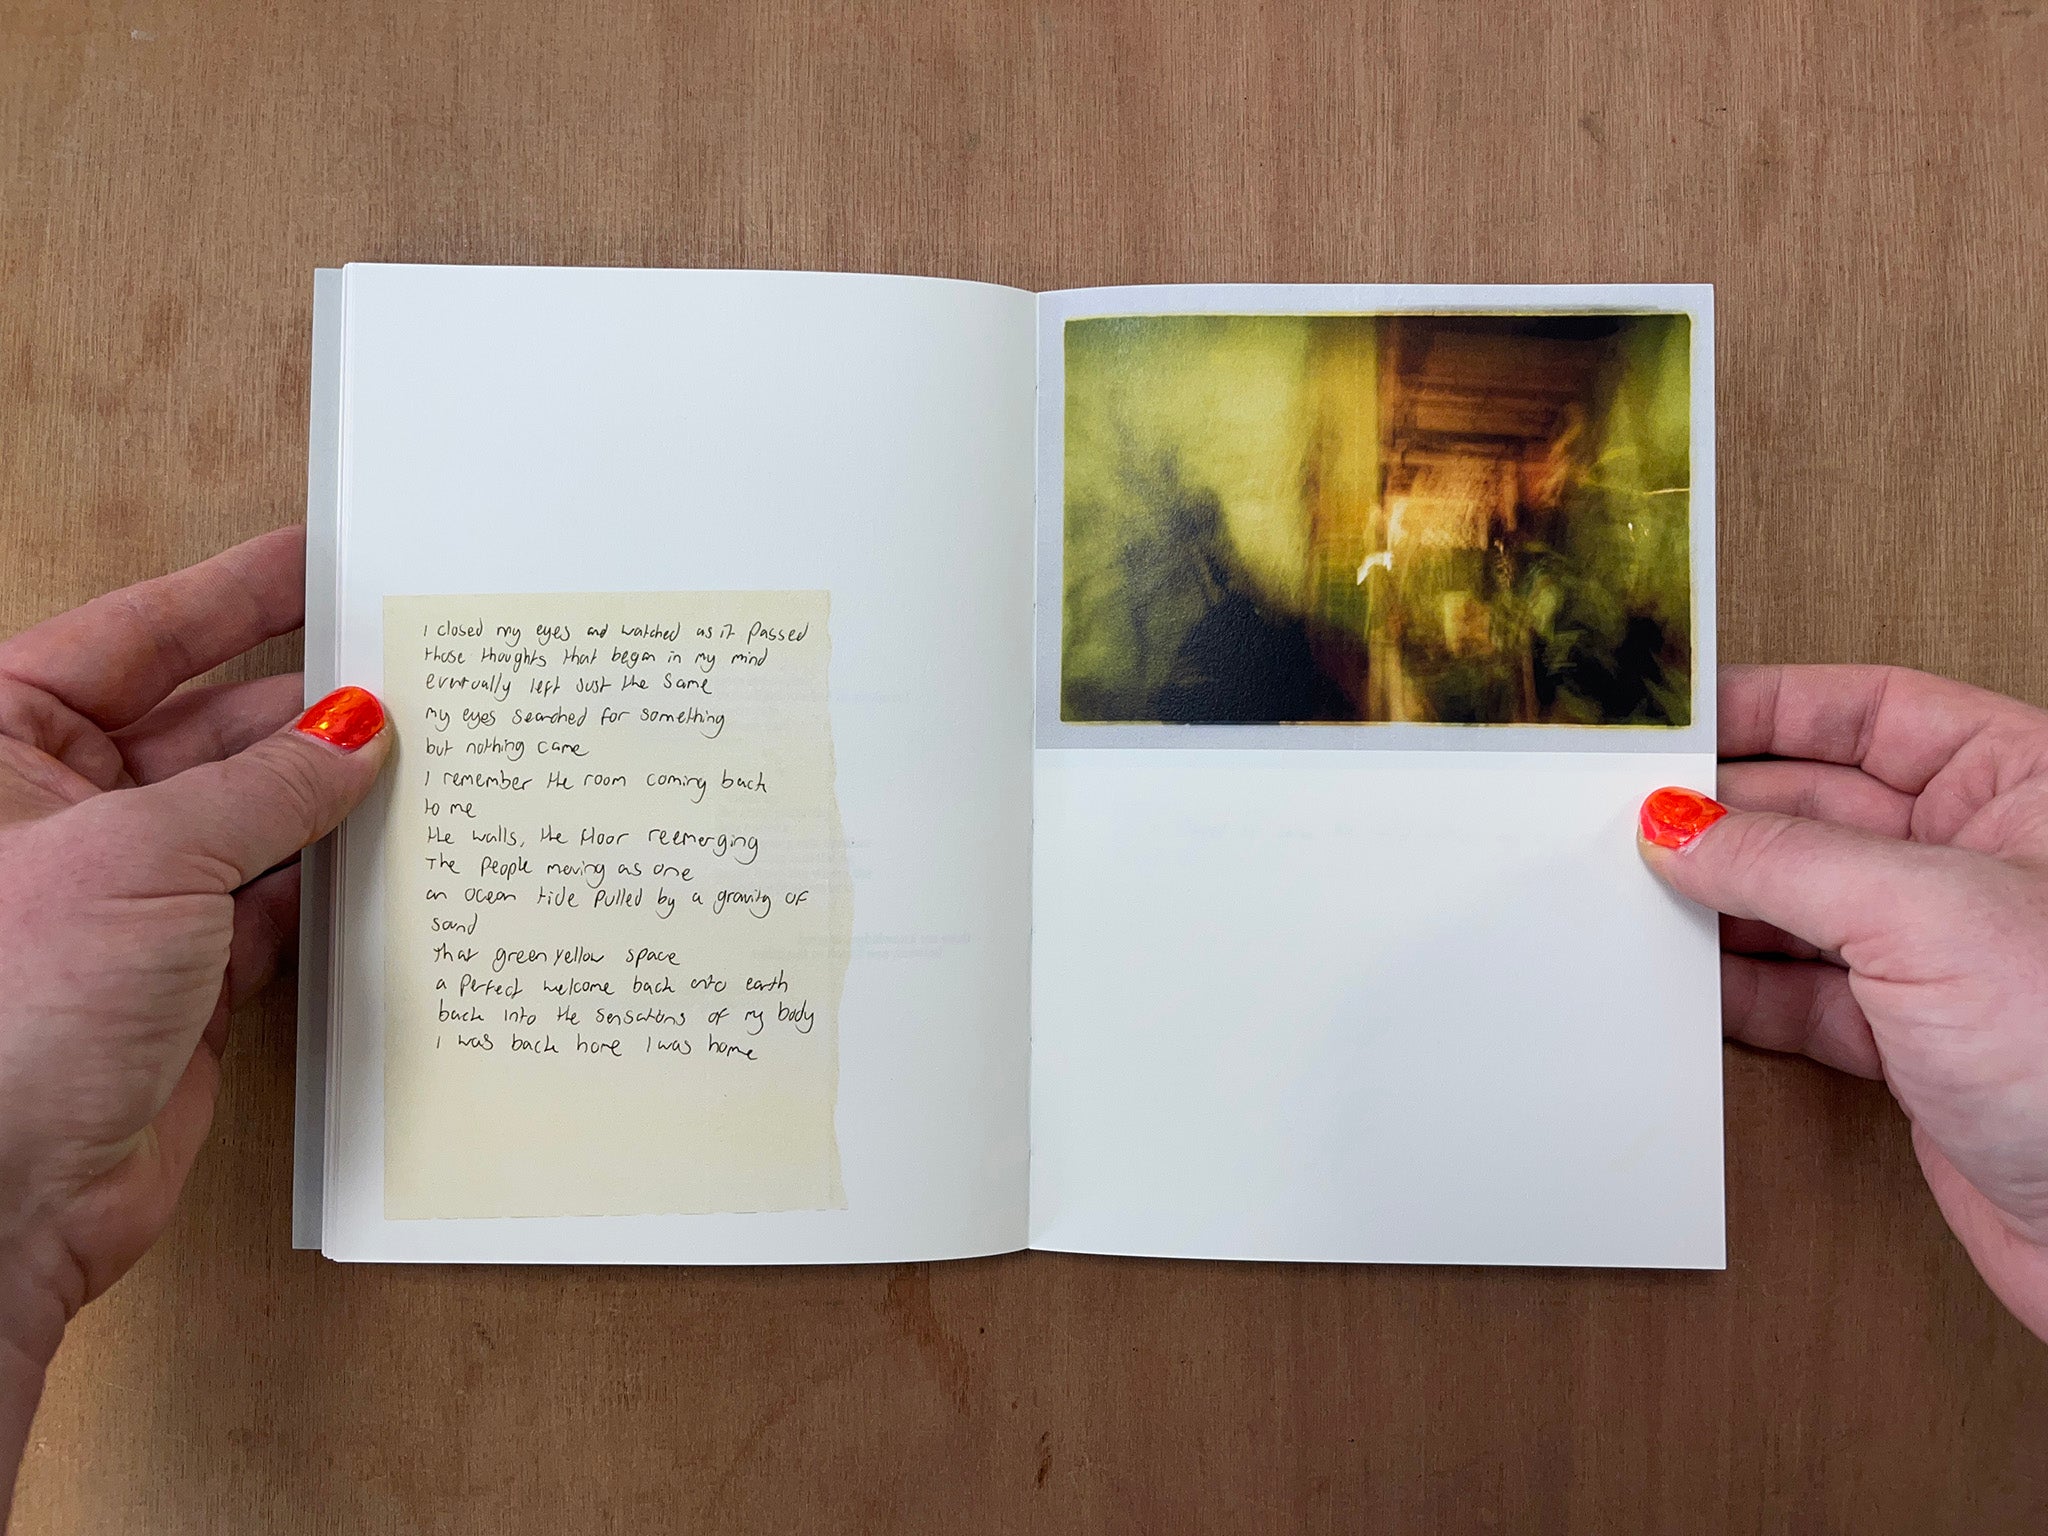 I closed my eyes and watched as it passed
those thoughts that began in my mind
eventually left just the same
my eyes searched for something
but nothing came
I remember the room coming back
to me
the walls, the floor reemerging
The people moving as one
an ocean tide pulled by a gravity of
sound
that green yellow space
a perfect welcome back onto earth
back into the sensations of my body
I was back home I was home